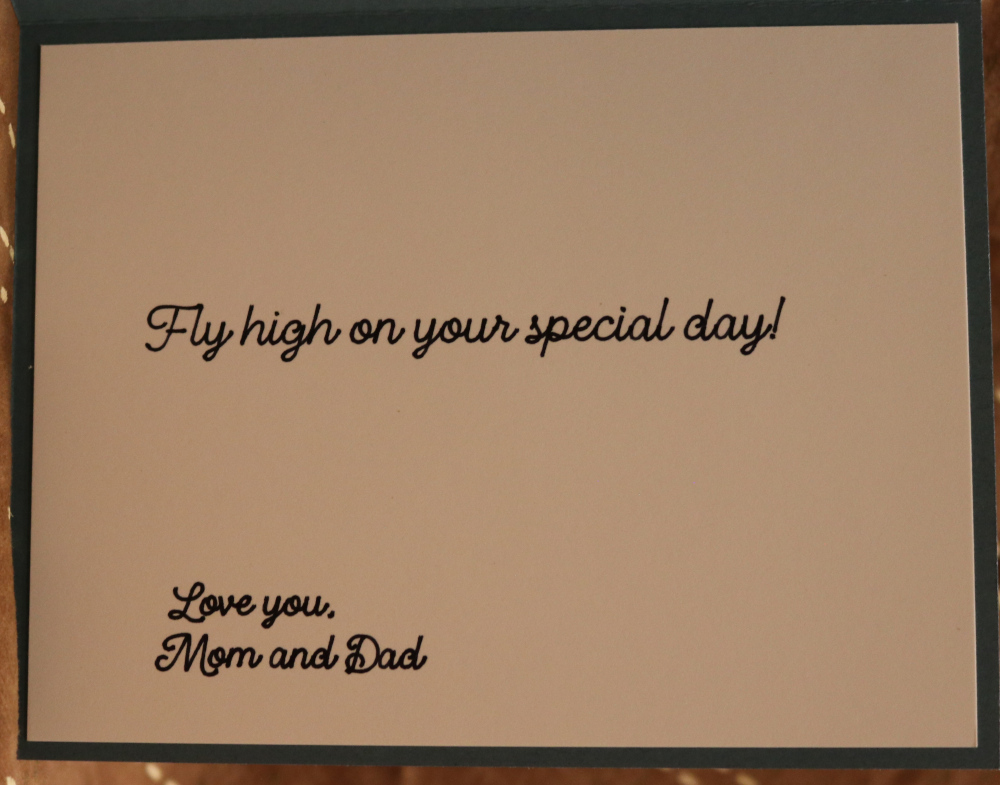 Fly high on your special day!
Love you,
Mom and Dad